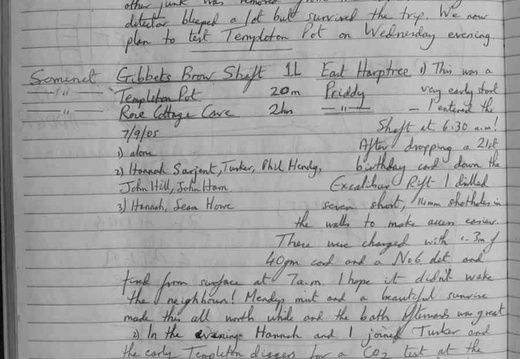 other junk was removed
detector bleeped a lot but survived the trip. We now
plan to test Templeton Pot on Wednesday evening.
Somerset Gibbets Brow Shaft 1½ East Harptree 1) This was a
— " — Templeton Pot 20m Priddy very early start
— " — Rose Cottage Cave 2hrs — " — – I entered the
7/9/05 Shaft at 6.30 a.m!
1) alone After dropping a 21st
2) Hannah Sarjent, Tusker, Phil Hendy, birthday card down the
John Hill, John Ham Excalibur Rift I drilled
3) Hannah, Sean Howe seven short, 14mm shotholes in
the walls to make access easier.
These were charged with 3m of
40gm cord and a No6 det and
fired from surface at 7a.m. I hope it didn't wake
the neighbours! Mendips mist and a beautiful sunrise
made this all worth while and the bath afterwards was great
2) In the evening Hannah and I joined Tusker and
the early Templeton diggers for a CO2 test at the